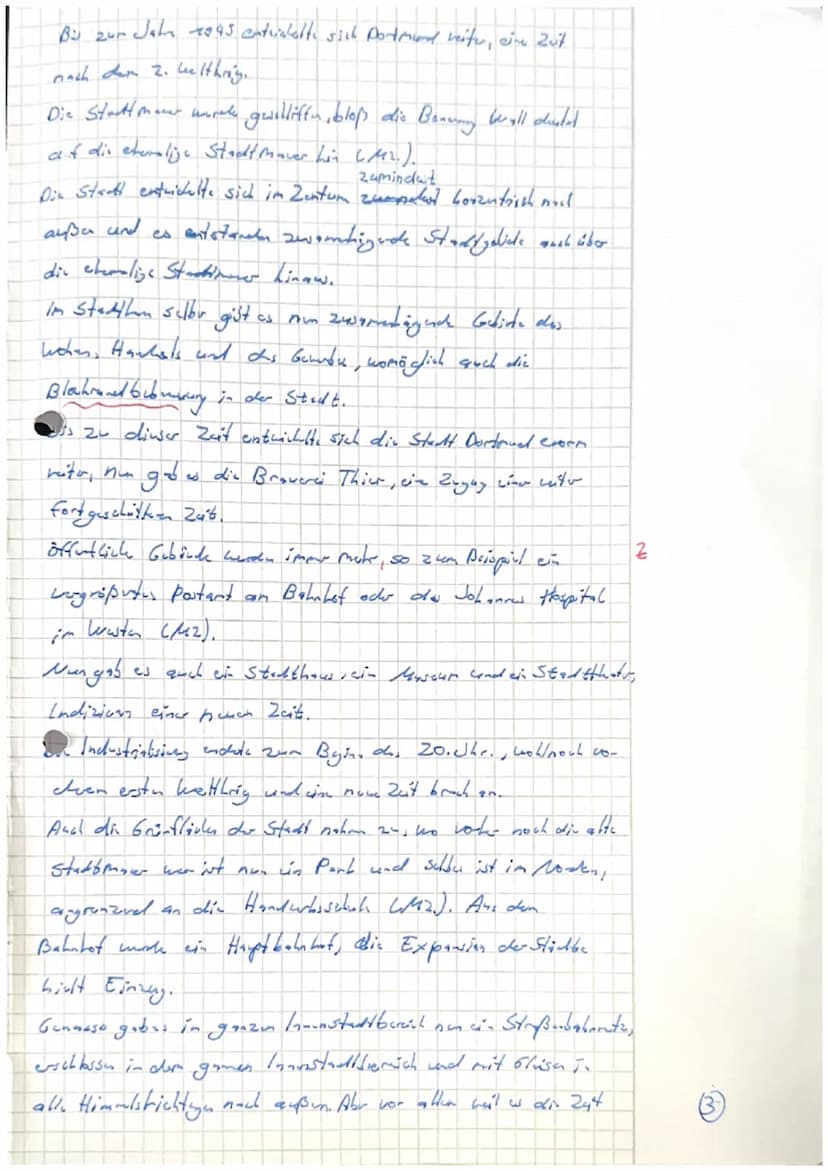 Bis zum Jahr 1945 entwickelte sich Dortmund weiter, eine Zeit
nach dem 2. Weltkrieg.
Die Stadtmauer wurde geschliffen, bloß die Benennung Wall deutet
auf die ehemalige Stadtmauer hin (M2.).
zumindest
Die Stadt entwickelte sich im Zentrum konzentrisch nach
außen und es entstanden zusammenhängende Stadtgebiete auch über
die ehemalige Stadtmauer hinaus.
Im Stadtkern selber gibt es nun zusammenhängende Gebiete des
Wohnens, Handels und des Gewerbes, womöglich auch die
in der Stadt.
Bis zu dieser Zeit entwickelte sich die Stadt Dortmund enorm
weiter, nun gab es die Brauerei Thier, ein einer weiter
fortgeschrittenen Zeit.
öffentliche Gebäude werden immer mehr, so zum Beispiel ein
vergrößertes Postamt am Bahnhof oder das Johannes Hospital
im Westen (M2).
Z
Nun gab es auch ein Stadthaus, ein Museum und ein Stadttheater,
Indizien einer neuen Zeit.
Die Industrialisierung endete zum Beginn des 20. Jhr., wohl noch vor
dem ersten Weltkrieg und eine neue Zeit brach an.
Auch die Grünflächen der Stadt nahmen zu, wo vorher noch die alte
Stadtmauer war ist nun ein Park und selber ist im Norden,
angrenzend an die Handwerksschule (M2.). Aus dem
Bahnhof wurde ein Hauptbahnhof, die Expansion der Städte
hielt Einzug.
Genauso gab es im ganzen Innenstadtbereich nun ein Straßenbahnnetz,
erschlossen in dem ganzen Innenstadtbereich und mit Gleisen in
alle Himmelsrichtungen nach außen. Aber vor allem weil es die Zeit
3